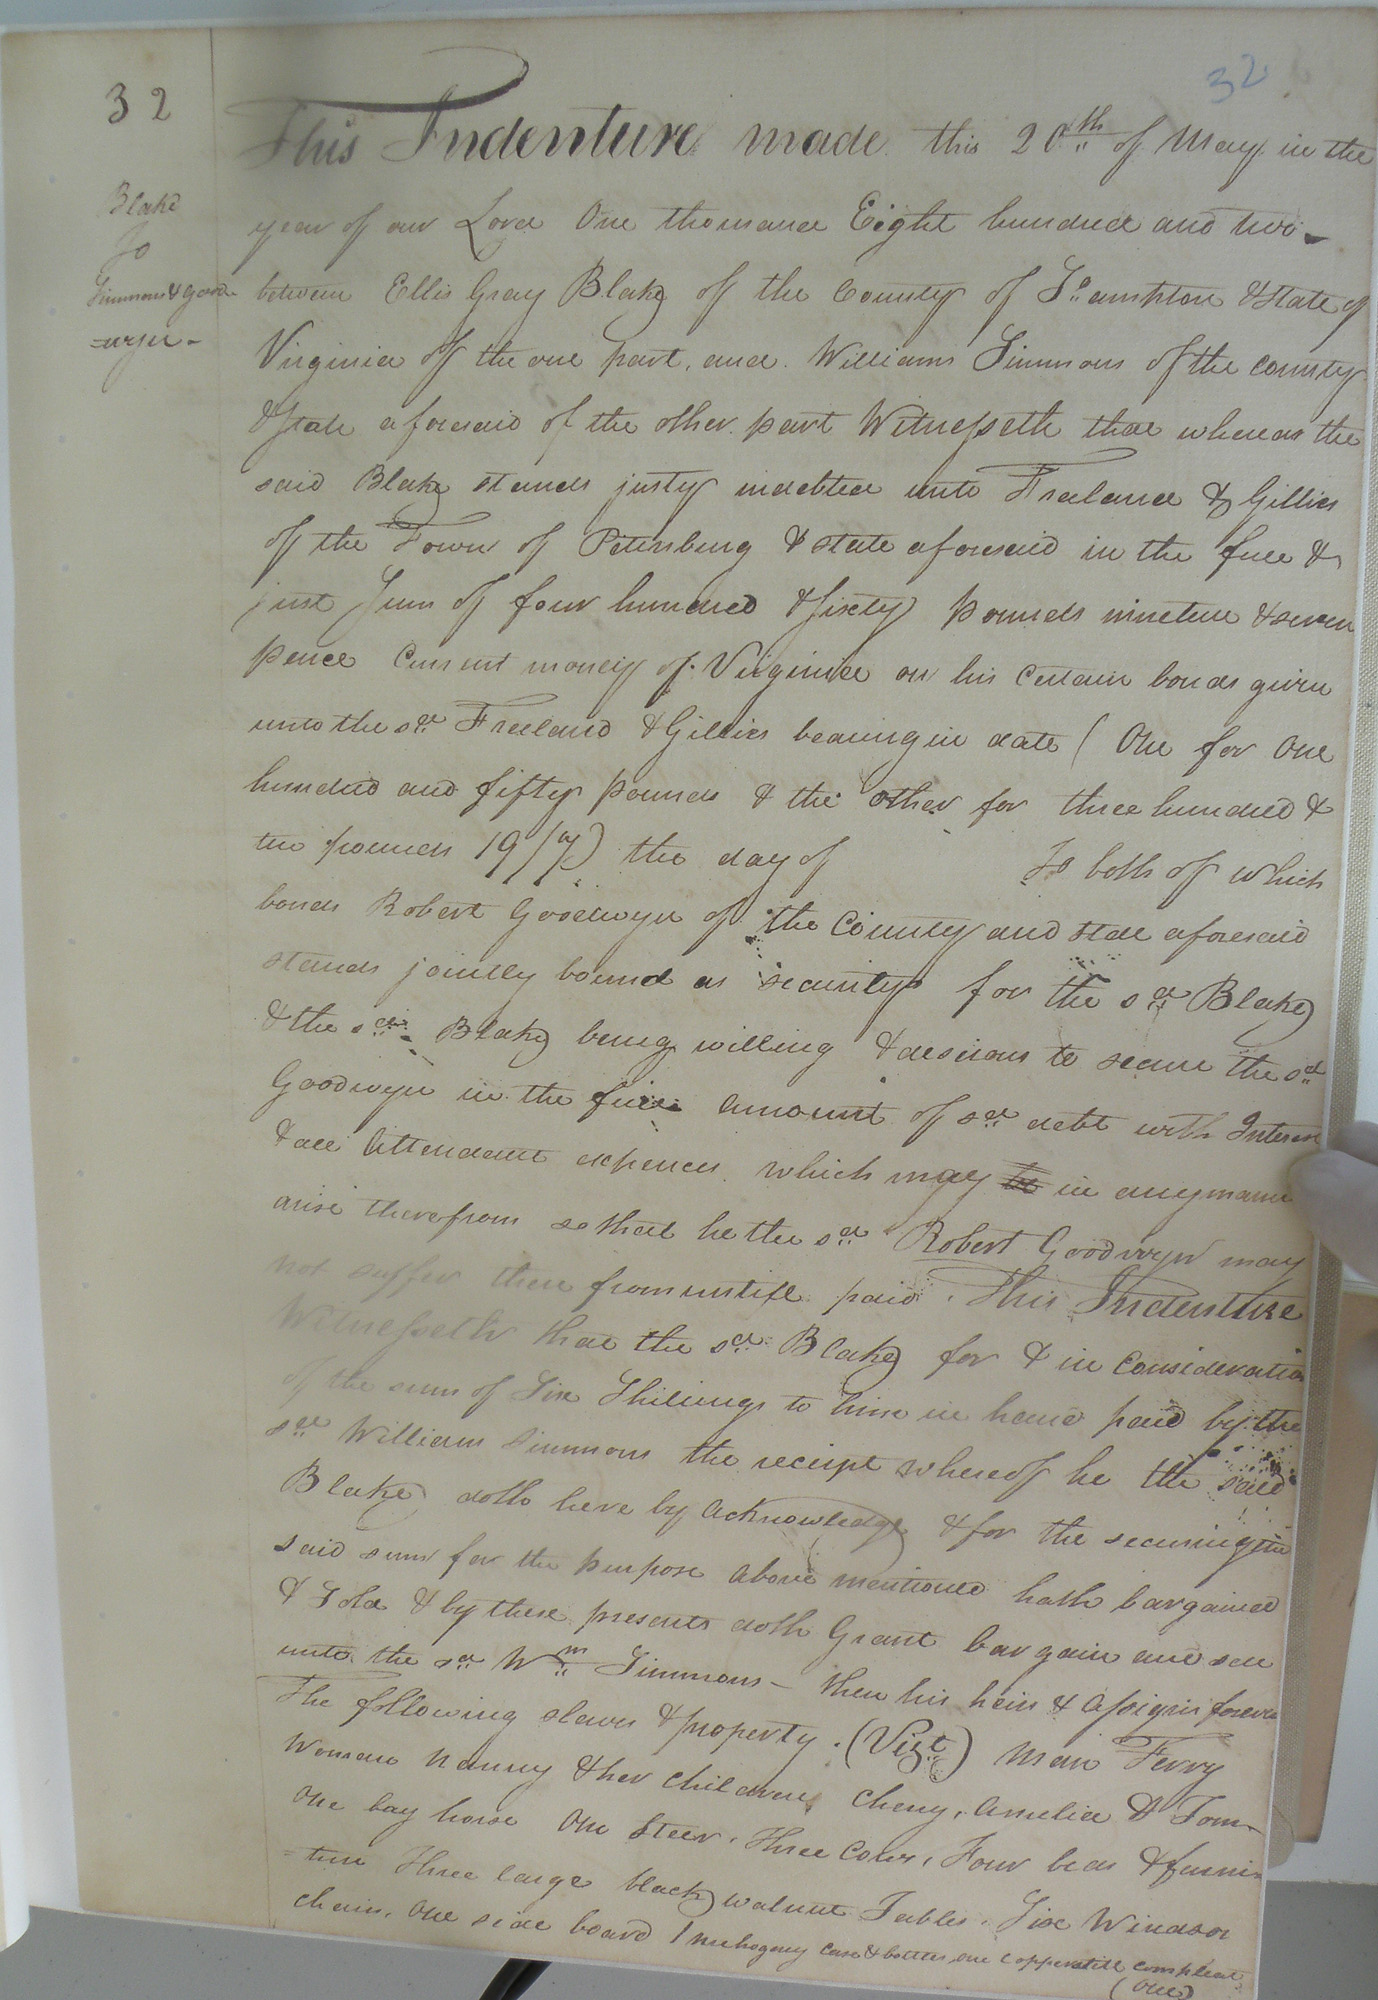 32
32
Blake
To
Simmons & Good-
=wyn-
This Indenture made this 20th of May in the
year of our Lord One thousand Eight hundred and two-
between Ellis Gray Blake of the County of So.ampton & State of
Virginia of the one part, and William Simmons of the County
& State aforesaid of the other part Witnesseth that whereas the
said Blake stands justy indebted unto Freeland & Gillies
of the Town of Petersburg & State aforesaid in the full &
just Sum of four hundred & Sixty pounds nineteen & seven
pence Current money of Virginia on his Certain bonds given
unto the sd Freeland & Gillies bearing in date (One for One
hundred and fifty pounds & the other for three hundred &
ten pounds 19/7) the day of To both of which
bonds Robert Goodwyn of the County and State aforesaid
stands jointly bound as security for the sd Blake
& the sd Blake being willing & desirous to secure the sd
Goodwyn in the full amount of sd debt with Interest
& all Attendant expences which may in any manner
arise therefrom so that he the sd Robert Goodwyn may
not suffer there from untill paid. This Indenture
Witnesseth that the sd Blake for & in Consideration
of the sum of Six Shillings to him in hand paid by the
sd William Simmons the receipt whereof he the said
Blake doth here by Acknowledge & for the securing the
said sum for the purpose above mentioned hath bargained
& Sold & by these presents doth Grant bargain and sell
unto the sd Wm Simmons- then his heirs & Assigns forever
The following slaves & property. (Vizt) Man Ferry
Woman Nanny & her Children, Cherry, Amelia & Tom-
One bay horse One Steer, Three Cows, Four beds & furni-
=ture Three large black walnut Tables, Six Windsor
chairs, One side board 1 Mahogany Case & bottles, one Copper still compleat
(One)